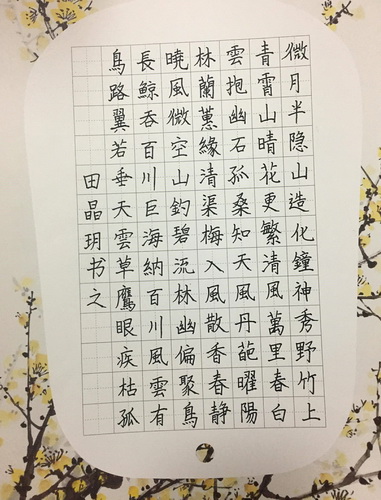 微月半隐山造化鐘神秀野竹上
青霄山晴花更繁清風萬里春白
雲抱幽石孤桑知天風丹葩曜陽
林蘭蕙緣清渠梅入風散香春靜
曉風微空山釣碧流林幽偏聚鳥
長鯨吞百川巨海納百川風雲有
鳥路翼若垂天雲草鷹眼疾枯孤
田晶玥书之